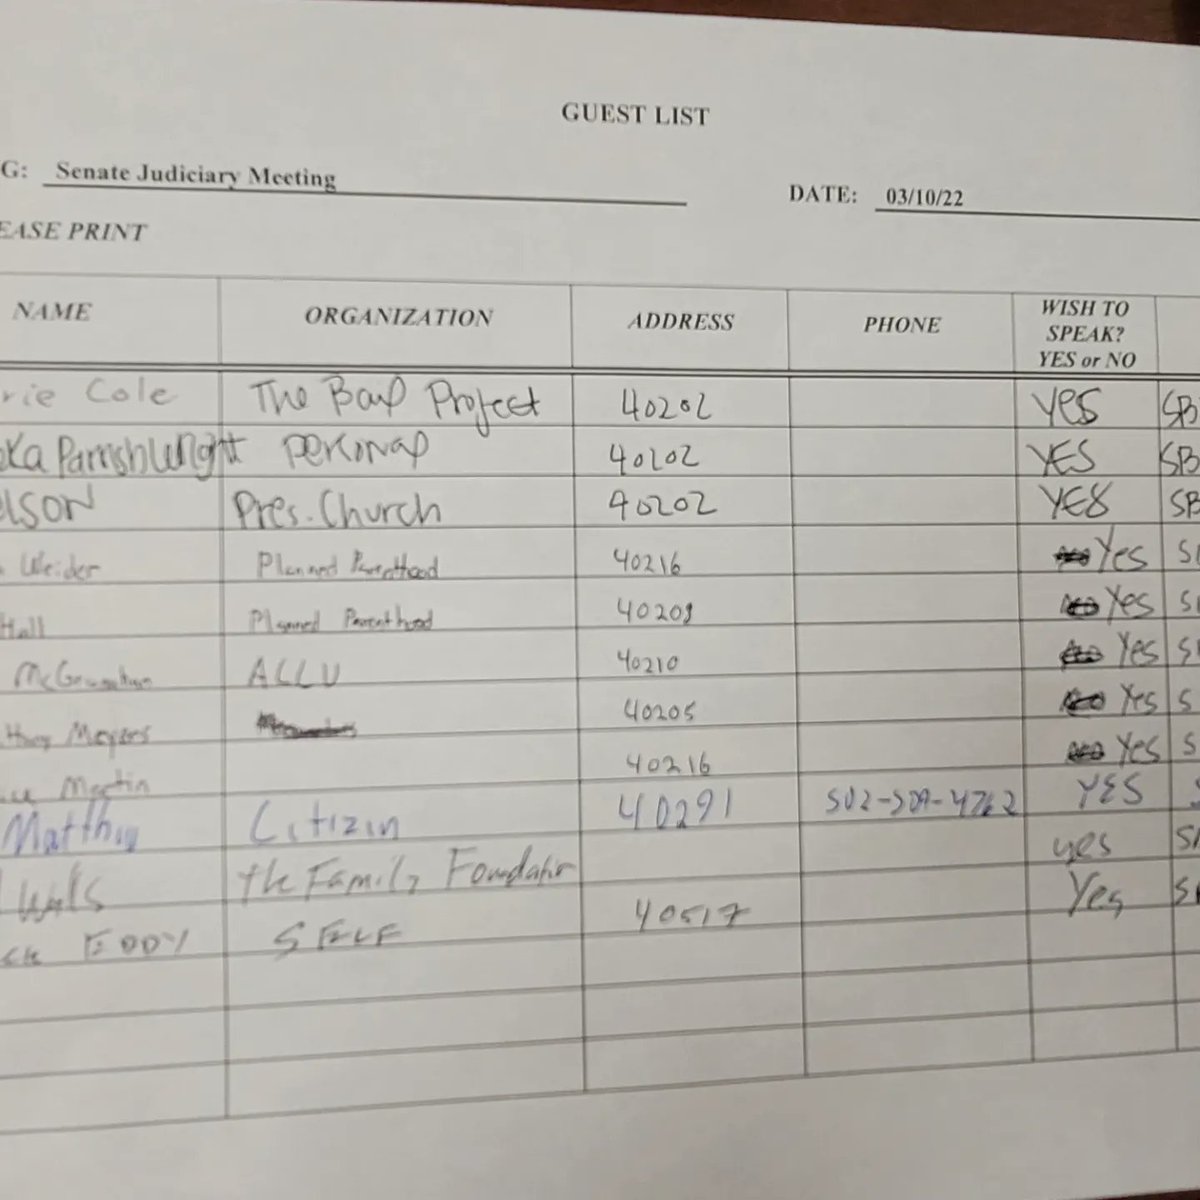 GUEST LIST
G: Senate Judiciary Meeting DATE: 03/10/22
EASE PRINT
NAME ORGANIZATION ADDRESS PHONE WISH TO SPEAK? YES or NO
rie Cole The Bail Project 40202 YES SB
ka Parrish Wright 40202 YES SB
elson Pres. Church 40202 YES SB
Weider Planned Parenthood 40216 Yes S
Hall Planned Parenthood 40208 Yes S
ACLU 40210 Yes S
Meyers 40205 Yes S
Martin 40216 Yes S
Matthu Citizin 40291 YES
Walls the Family Foundation yes S
ck EDDY SELF 40517 Yes S